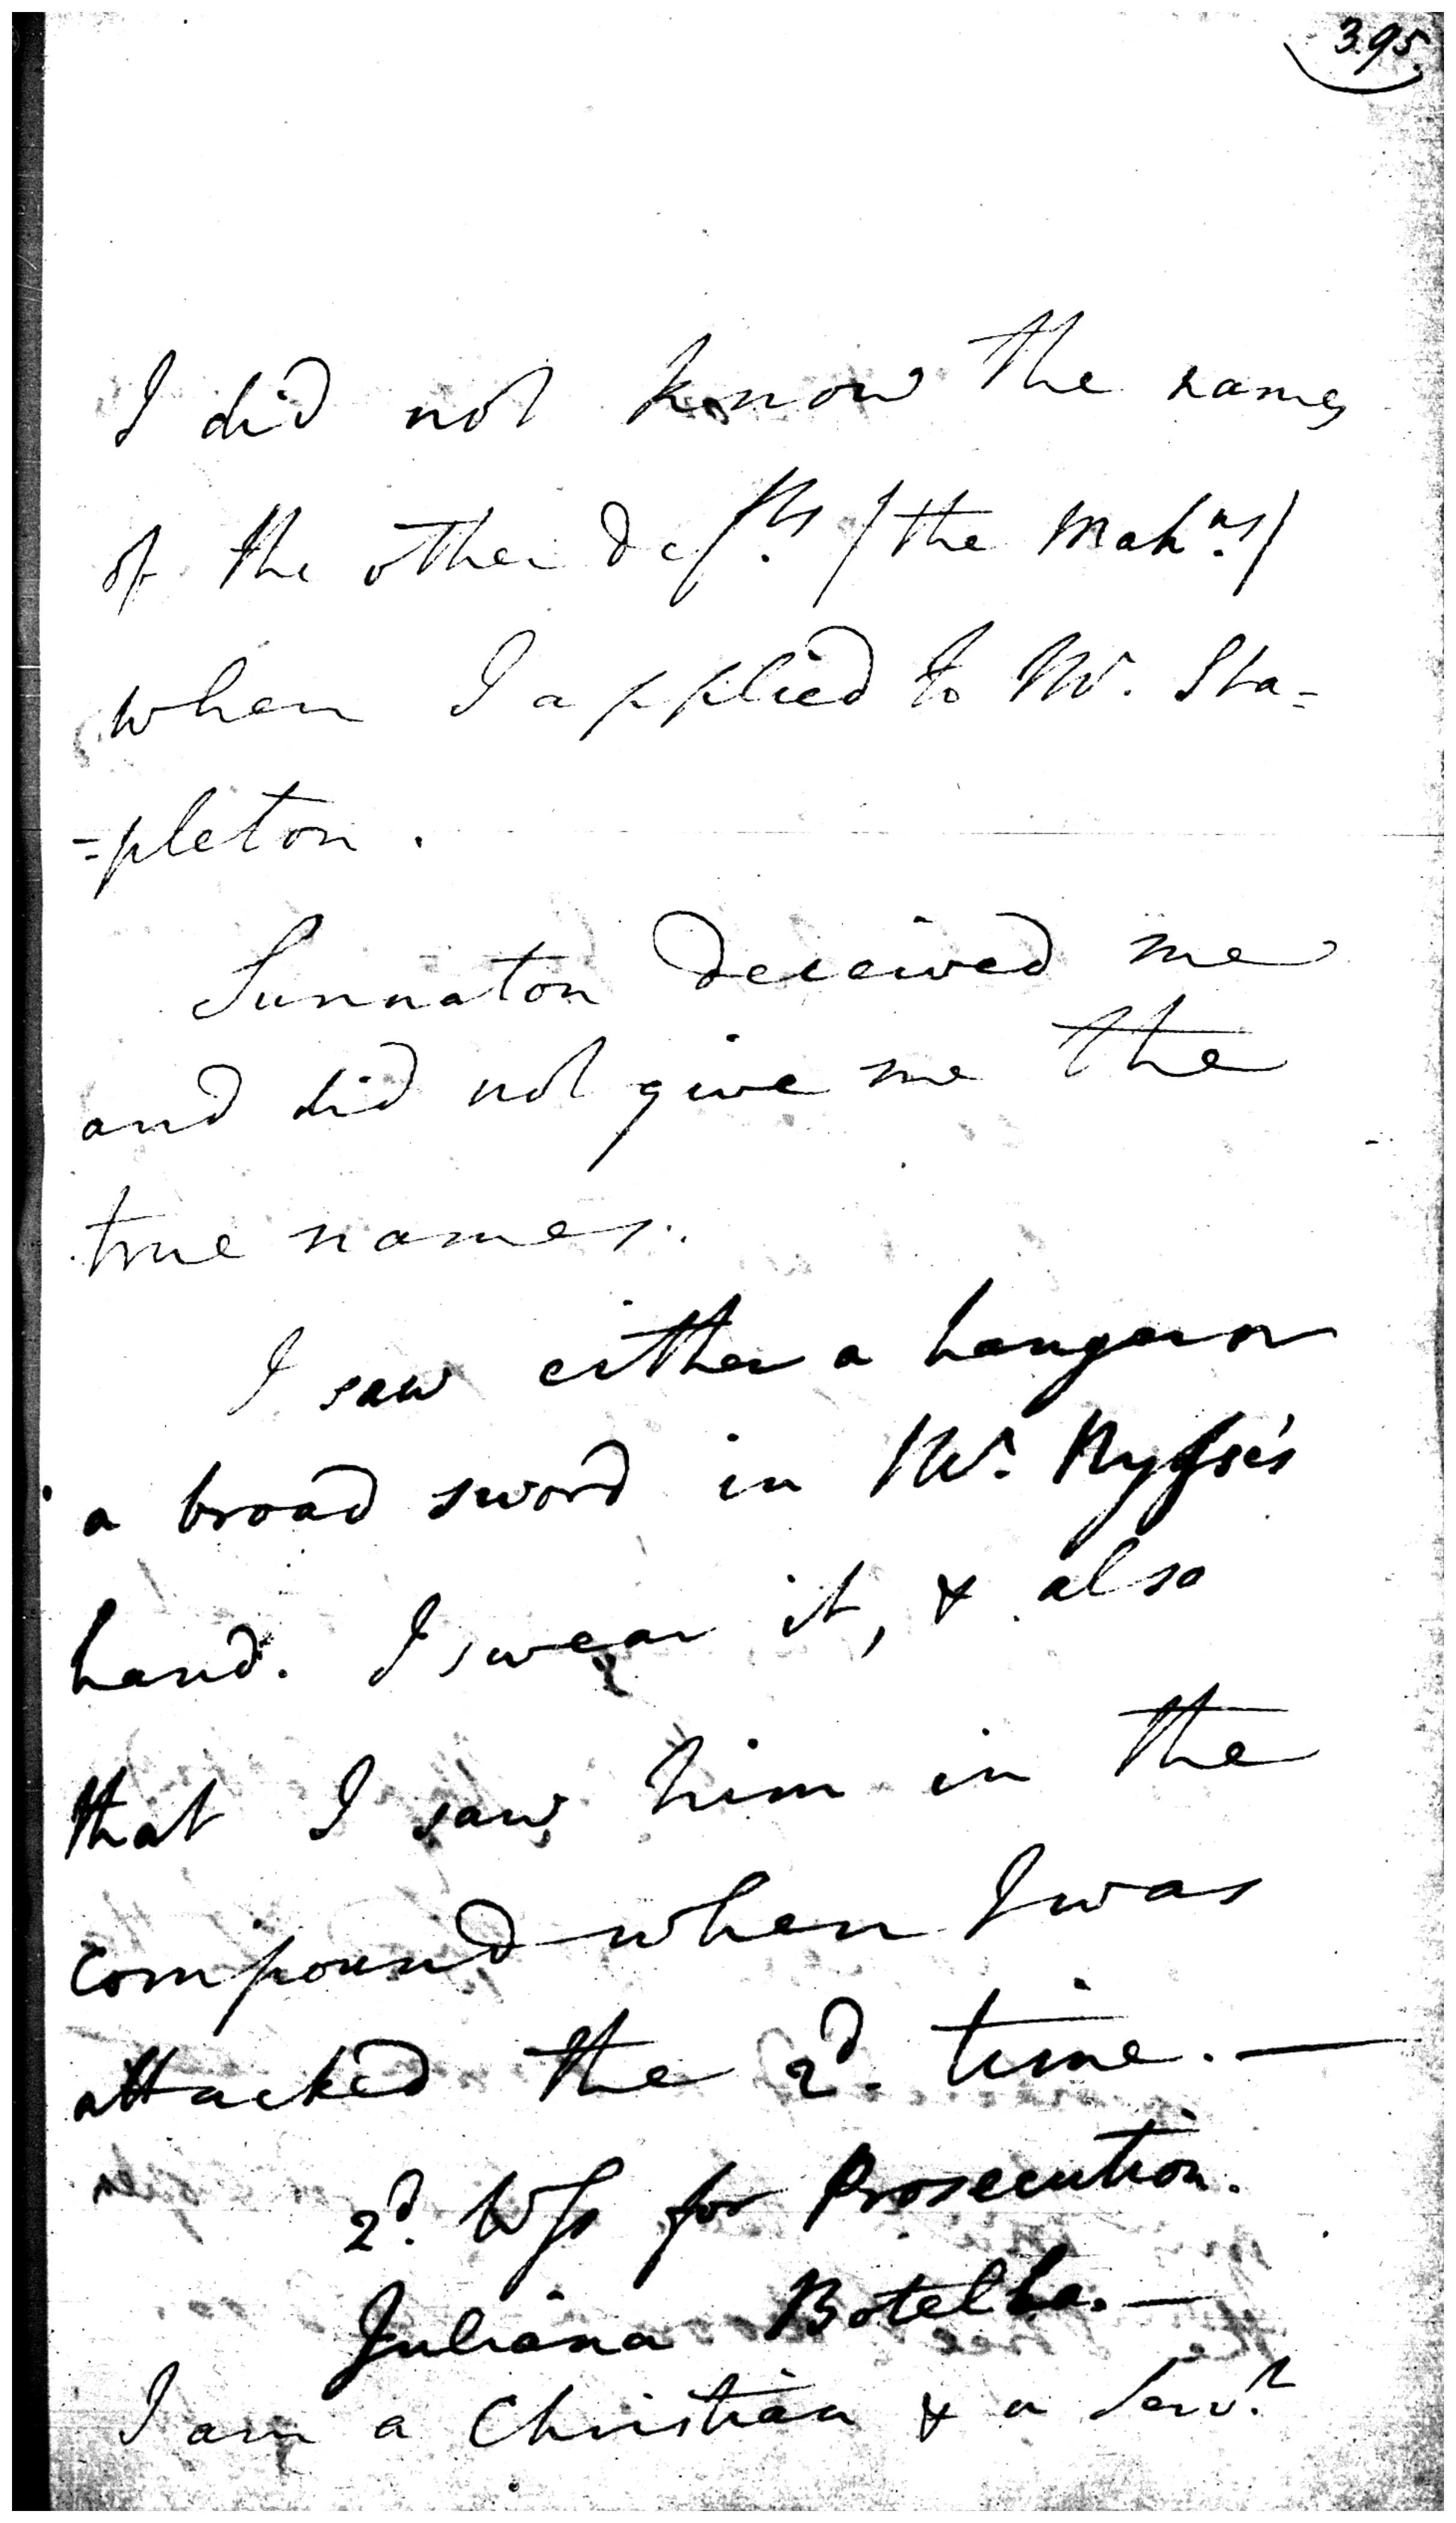 395.
I did not know the names
of the other Defts. (the Mahns.)
when I applied to Mr. Sta=
=pleton.
Sunnaton deceived me
and did not give me the
true names.
I saw either a hanger or
a broad sword in Mr. Nysse's
hand. I swear it, & also
that I saw him in the
compound when I was
attacked the 2d. time. —
2d. Wss for Prosecution.
Juliana Botelha. —
I am a Christian & a Servt.